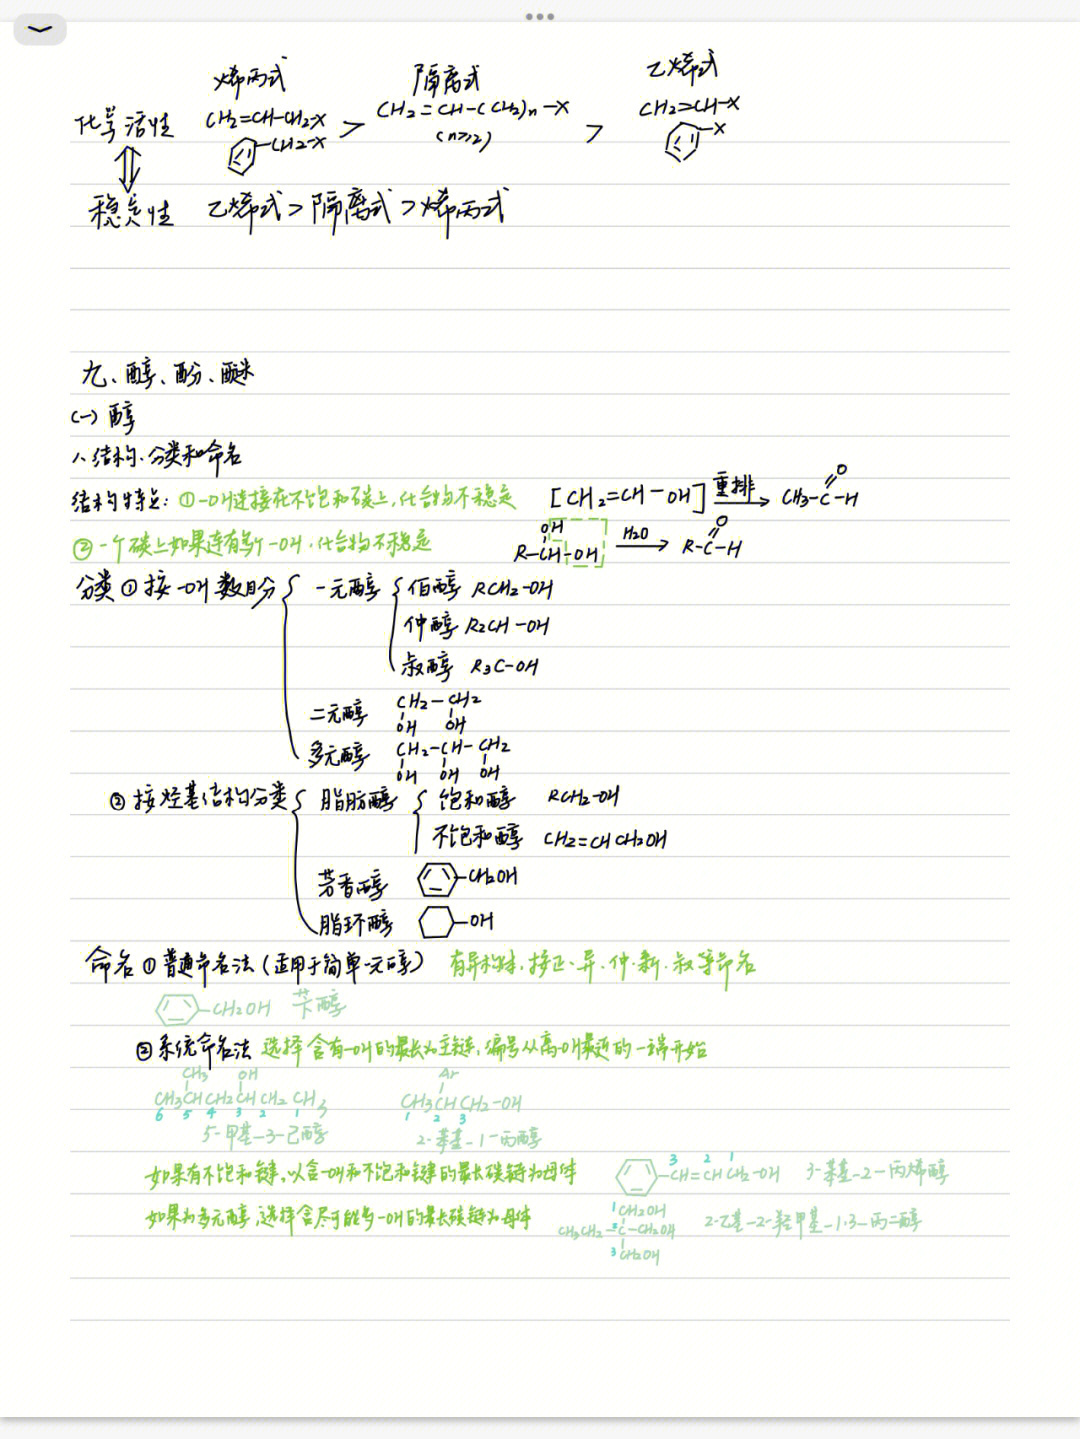 烯丙式 隔离式 乙烯式
化学活性 CH2=CH-CH2-X > CH2=CH-(CH2)n-X > CH2=CH-X
-CH2-X (n≥2) -X
稳定性 乙烯式>隔离式>烯丙式
九、醇、酚、醚
(一) 醇
1、结构、分类和命名
结构特点: ①-OH连接在不饱和碳上,化合物不稳定 [CH2=CH-OH] 重排 CH3-C-H
O
②一个碳上如果连有多个-OH,化合物不稳定 R-CH-OH H2O R-C-H
OH O
分类①按-OH数目分 一元醇 伯醇 RCH2-OH
仲醇 R2CH-OH
叔醇 R3C-OH
二元醇 CH2-CH2
OH OH
多元醇 CH2-CH-CH2
OH OH OH
②按烃基结构分类 脂肪醇 饱和醇 RCH2-OH
不饱和醇 CH2=CHCH2OH
芳香醇 -CH2OH
脂环醇 -OH
命名①普通命名法(适用于简单一元醇) 有异构时,按正、异、仲、新、叔等命名
-CH2OH 苄醇
②系统命名法 选择含有-OH的最长为主链,编号从离-OH最近的一端开始
CH3 OH Ar
CH3CHCH2CHCH2CH3 CH3CHCH2-OH
6 5 4 3 2 1 1 2 3
5-甲基-3-己醇 2-苯基-1-丙醇
如果有不饱和键,以含-OH和不饱和键的最长碳链为母体 -CH=CHCH2-OH 3-苯基-2-丙烯醇
3 2 1
如果为多元醇,选择含尽可能多-OH的最长碳链为母体 CH3CH2-C-CH2OH 2-乙基-2-羟甲基-1,3-丙二醇
1 CH2OH
2
3 CH2OH